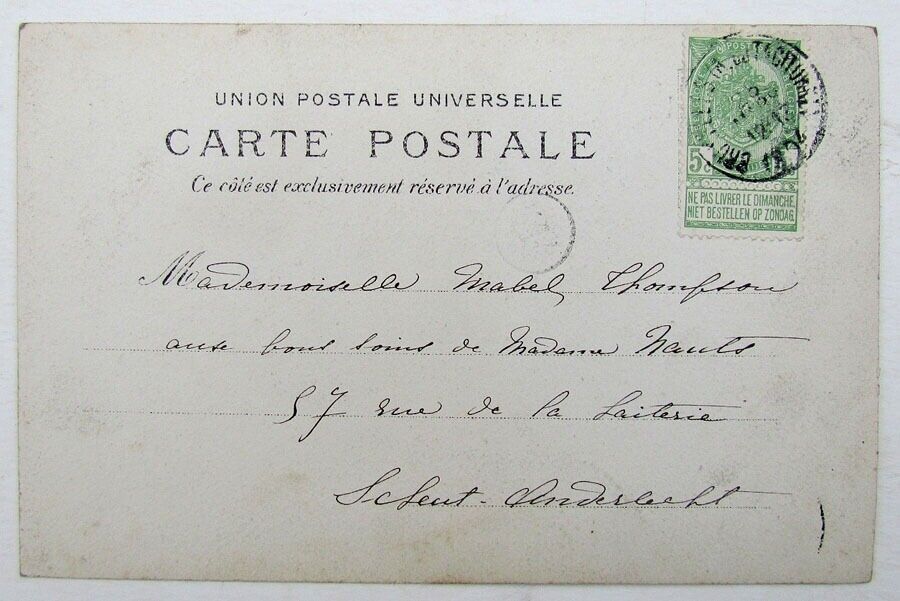 UNION POSTALE UNIVERSELLE
CARTE POSTALE
Ce côté est exclusivement réservé à l'adresse.
POST
5
NE PAS LIVRER LE DIMANCHE
NIET BESTELLEN OP ZONDAG
Mademoiselle Mabel Thompson
aux bons soins de Madame Nauts
57 rue de la Laiterie
Scheut-Anderlecht